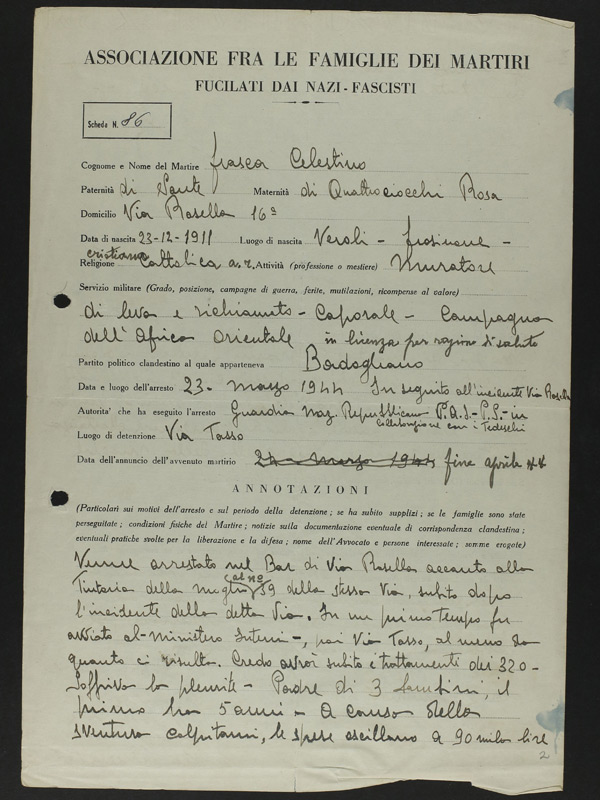 ASSOCIAZIONE FRA LE FAMIGLIE DEI MARTIRI
FUCILATI DAI NAZI-FASCISTI
Scheda N. 86
Cognome e Nome del Martire frasca Celestino
Paternità di Sante Maternità di Quattrociocchi Rosa
Domicilio Via Rasella 16ª
Data di nascita 23-12-1911 Luogo di nascita Veroli - frosinone -
Religione cristiana Cattolica a.r. Attività (professione o mestiere) Muratore
Servizio militare (Grado, posizione, campagne di guerra, ferite, mutilazioni, ricompense al valore)
di leva e richiamato - Caporale - Campagna
dell'Africa Orientale in licenza per ragioni di salute
Partito politico clandestino al quale apparteneva Badogliano
Data e luogo dell'arresto 23- Marzo 1944 In seguito all'incidente Via Rasella
Autorita' che ha eseguito l'arresto Guardia Naz. Repubblicana P.A.I.-P.S.- in
collaborazione con i Tedeschi
Luogo di detenzione Via Tasso
Data dell'annuncio dell'avvenuto martirio 24 - Marzo 1944 fine aprile 44
ANNOTAZIONI
(Particolari sui motivi dell'arresto e sul periodo della detenzione; se ha subìto supplizi; se le famiglie sono state
perseguitate; condizioni fisiche del Martire; notizie sulla documentazione eventuale di corrispondenza clandestina;
eventuali pratiche svolte per la liberazione e la difesa; nome dell'Avvocato e persone interessate; somme erogate)
Venne arrestato nel Bar di Via Rasella accanto alla
Tintoria della moglie al nº 59 della stessa Via, subito dopo
l'incidente della detta Via. In un primo tempo fu
avviato al - Ministero Interni -, poi Via Tasso, al meno da
quanto ci risulta. Credo avrà subito i trattamenti dei 320 -
Soffriva la pleurite - Padre di 3 bambini, il
primo ha 5 anni - A causa della
sventura colpitami, le spese oscillano a 90 mila lire
2